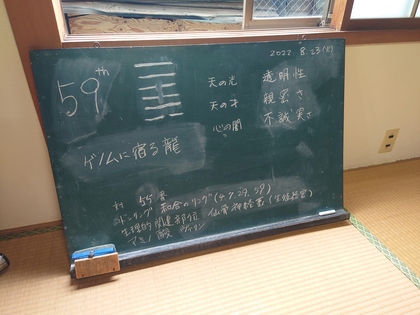 2022 8.23(火)
59th
天の光 透明性
天の才 親密さ
心の闇 不誠実さ
ゲノムに宿る龍
対 55番
コドンリング 和合のリング(4.7.29.59)
生理的関連部位 仙骨神経叢(生殖器官)
アミノ酸 ヴァリン